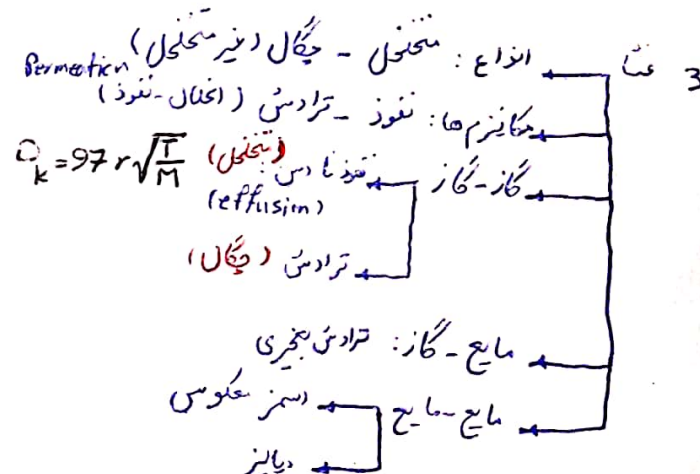 3 غشا
انواع: متخلخل - چگال (غیر متخلخل)
مکانیزم‌ها: نفوذ - تراوش (انحلال - نفوذ) Permeation
گاز - گاز
نفوذ نادسن: (متخلخل) (effusion)
D_k = 97 r √(T/M)
تراوش (چگال)
مایع - گاز: تراوش تبخیری
مایع - مایع
اسمز معکوس
دیالیز